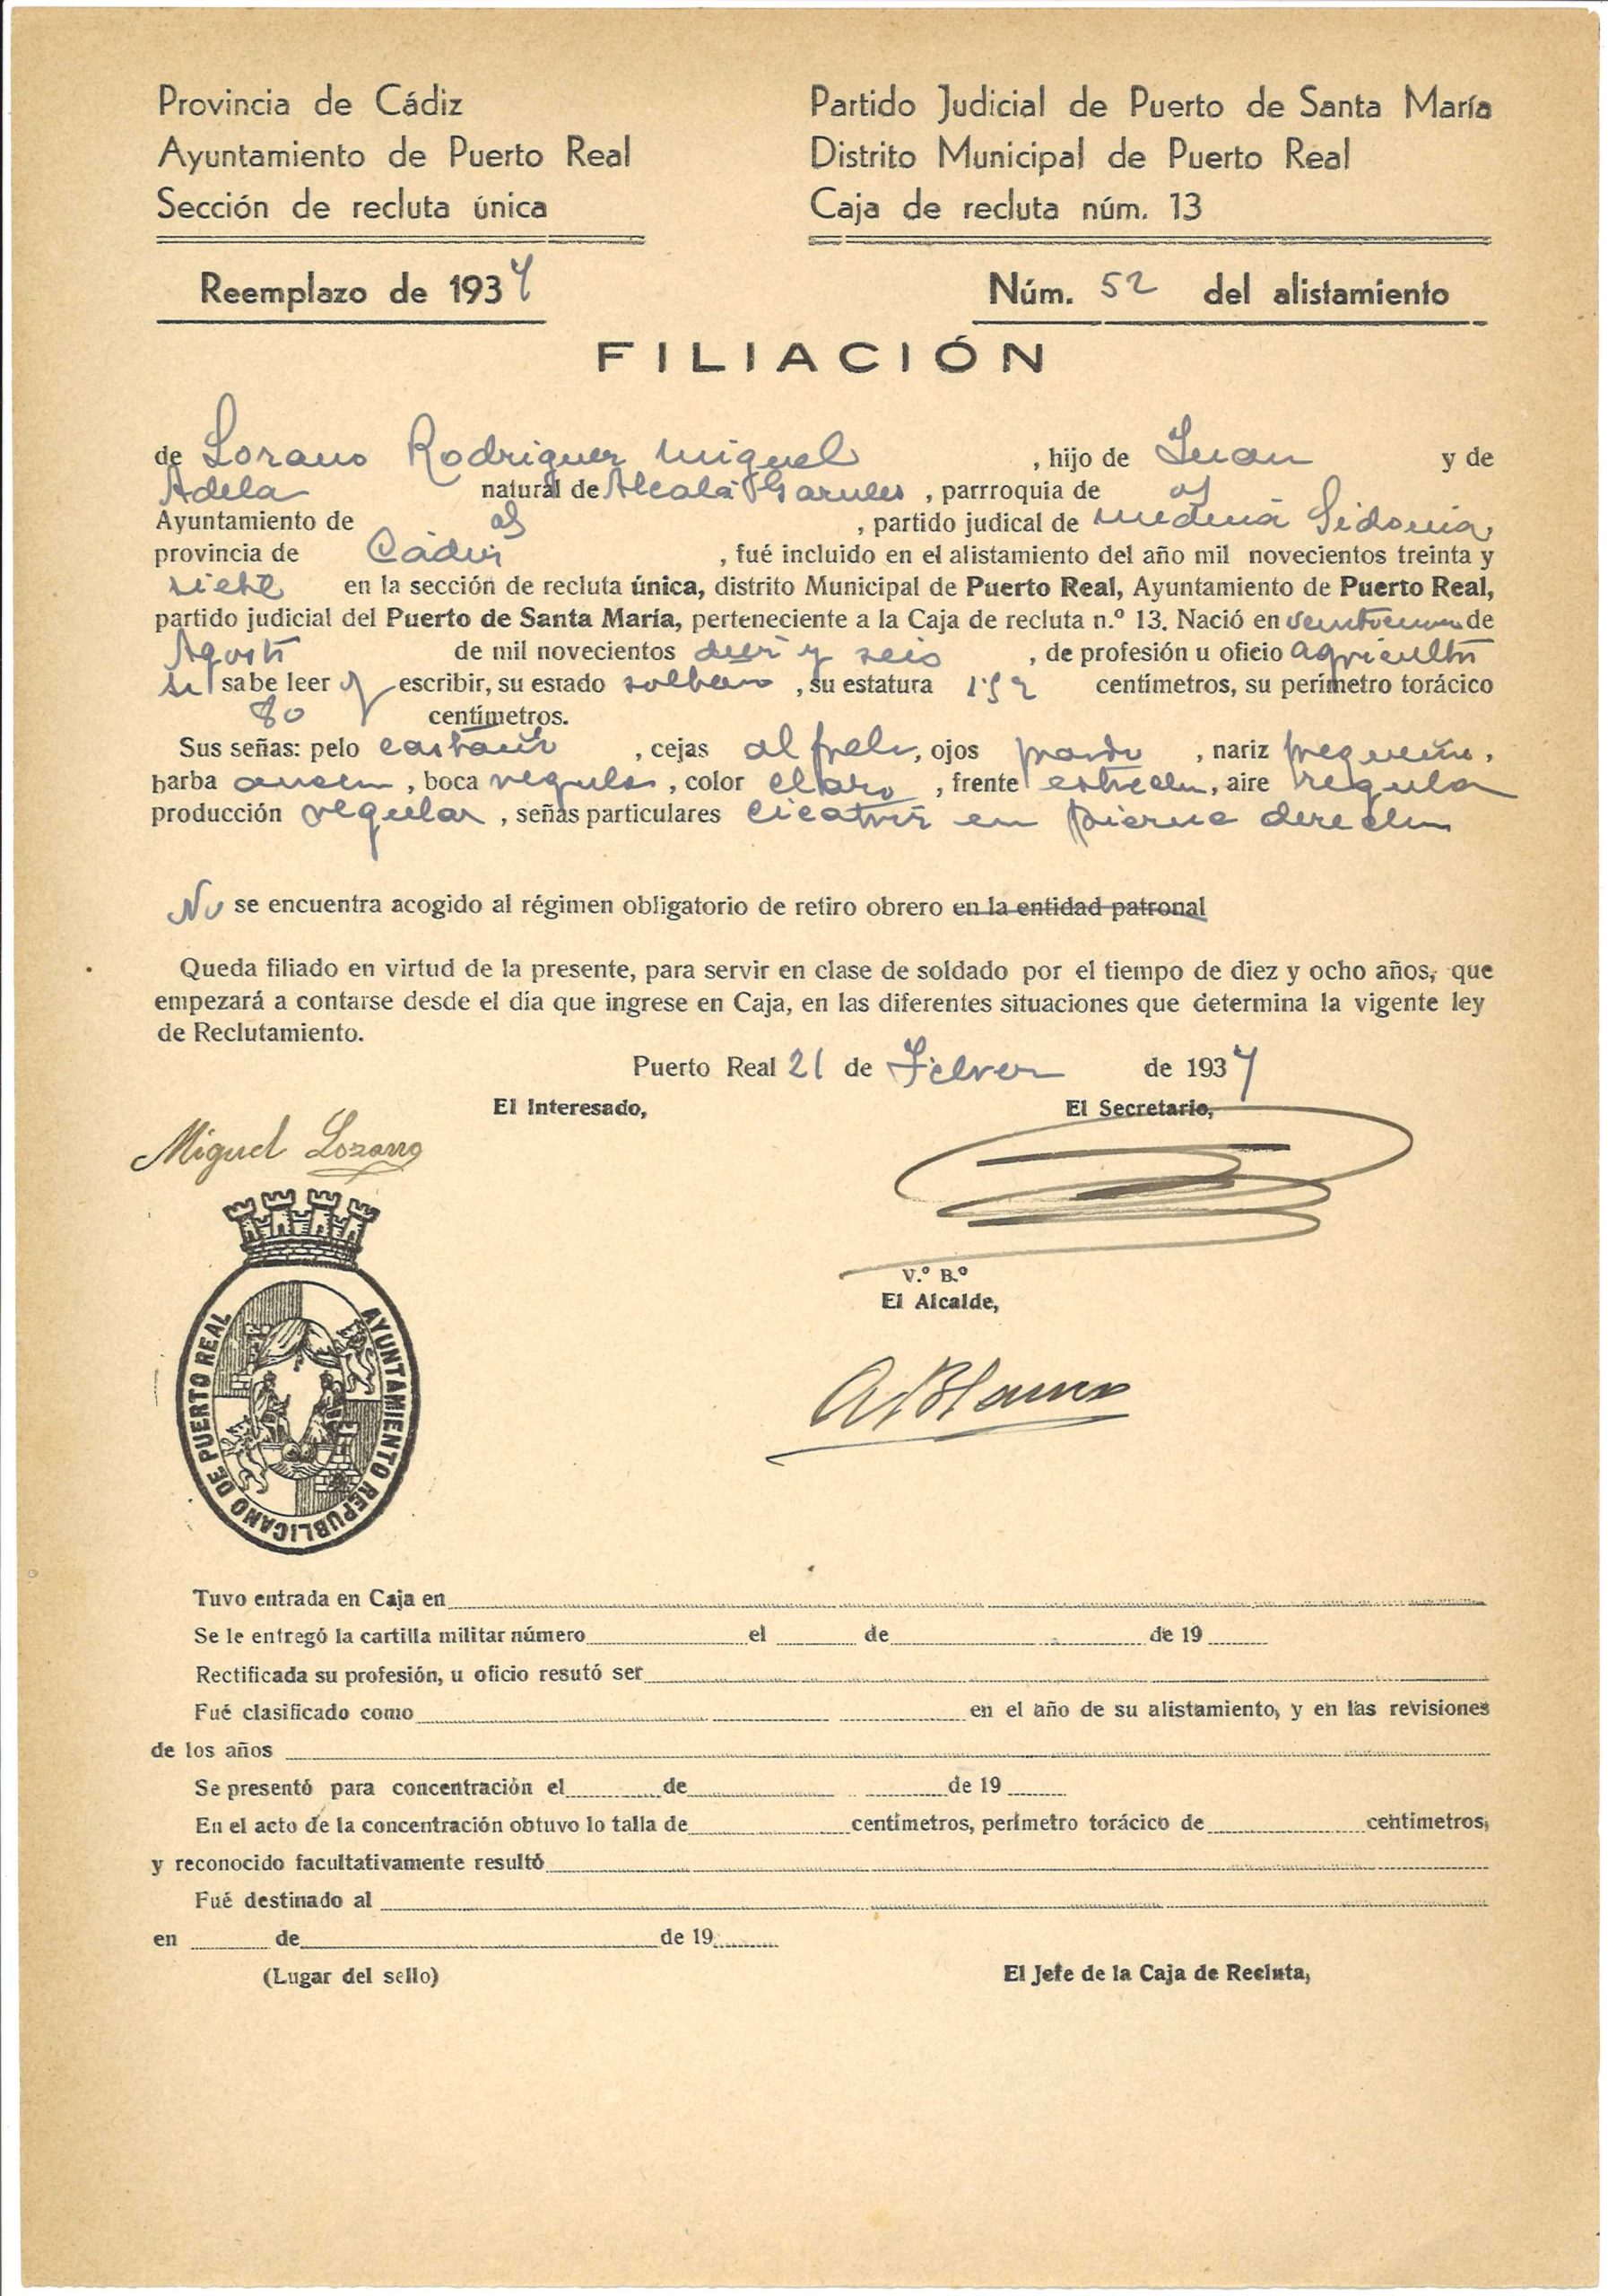 Provincia de Cádiz
Ayuntamiento de Puerto Real
Sección de recluta única
Partido Judicial de Puerto de Santa María
Distrito Municipal de Puerto Real
Caja de recluta núm. 13
Reemplazo de 1937
Núm. 52 del alistamiento
FILIACIÓN
de Lozano Rodriguez Miguel , hijo de Juan y de
Adela natural de Alcalá Gazules , parrroquia de
Ayuntamiento de , partido judical de Medina Sidonia,
provincia de Cádiz , fué incluido en el alistamiento del año mil novecientos treinta y
siete en la sección de recluta única, distrito Municipal de Puerto Real, Ayuntamiento de Puerto Real,
partido judicial del Puerto de Santa María, perteneciente a la Caja de recluta n.º 13. Nació en de
Agosto de mil novecientos diez y seis , de profesión u oficio agricultor
si sabe leer y escribir, su estado soltero , su estatura 1'52 centímetros, su perímetro torácico
80 centímetros.
Sus señas: pelo castaño , cejas al pelo, ojos pardo , nariz pequeña ,
barba , boca regular , color claro , frente estrecha, aire regular
producción regular , señas particulares cicatriz en pierna derecha
No se encuentra acogido al régimen obligatorio de retiro obrero en la entidad patronal
Queda filiado en virtud de la presente, para servir en clase de soldado por el tiempo de diez y ocho años, que
empezará a contarse desde el día que ingrese en Caja, en las diferentes situaciones que determina la vigente ley
de Reclutamiento.
Puerto Real 21 de Febrero de 1937
El Interesado,
El Secretario,
Miguel Lozano
V.º B.º
El Alcalde,
AYUNTAMIENTO REPUBLICANO DE PUERTO REAL
Tuvo entrada en Caja en
Se le entregó la cartilla militar número el de de 19
Rectificada su profesión, u oficio resutó ser
Fué clasificado como en el año de su alistamiento, y en las revisiones
de los años
Se presentó para concentración el de de 19
En el acto de la concentración obtuvo lo talla de centímetros, perímetro torácico de centímetros,
y reconocido facultativamente resultó
Fué destinado al
en de de 19
(Lugar del sello)
El Jefe de la Caja de Recluta,